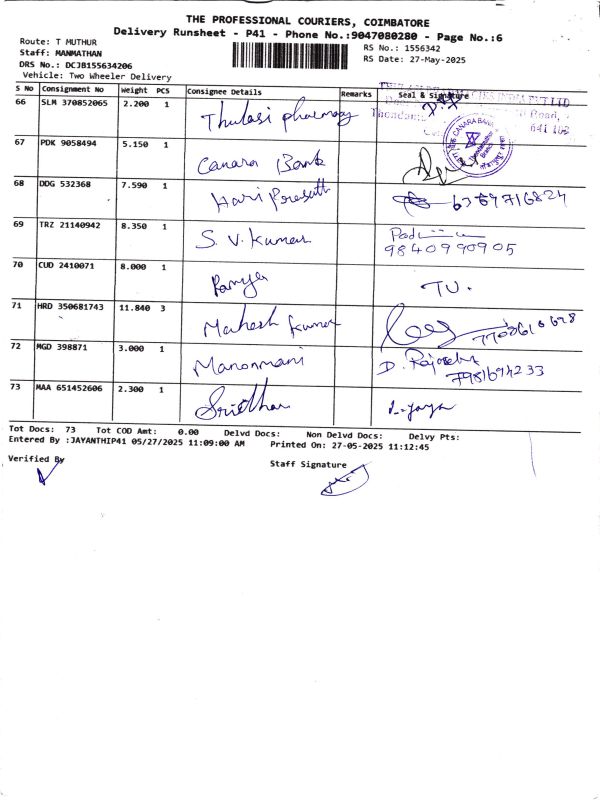 THE PROFESSIONAL COURIERS, COIMBATORE
Delivery Runsheet - P41 - Phone No.:9047080280 - Page No.:6
Route: T MUTHUR
Staff: MANMATHAN
DRS No.: DCJB155634206
Vehicle: Two Wheeler Delivery
RS No.: 1556342
RS Date: 27-May-2025
S No Consignment No Weight PCS Consignee Details Remarks Seal & Signature
66 SLM 370852065 2.200 1 Thulasi pharmacy
67 PDK 9058494 5.150 1 Canara Bank
CANARA BANK
68 DDG 532368 7.590 1 Hari Prasath 6369716824
69 TRZ 21140942 8.350 1 S.V. Kumar
9840990905
70 CUD 2410071 8.000 1 Ramya TV.
71 HRD 350681743 11.840 3 Mahesh Kumar
72 MGD 398871 3.000 1 Manonmani
73 MAA 651452606 2.300 1 Sridhar
Tot Docs: 73 Tot COD Amt: 0.00 Delvd Docs: Non Delvd Docs: Delvy Pts:
Entered By :JAYANTHIP41 05/27/2025 11:09:00 AM Printed On: 27-05-2025 11:12:45
Verified By
Staff Signature